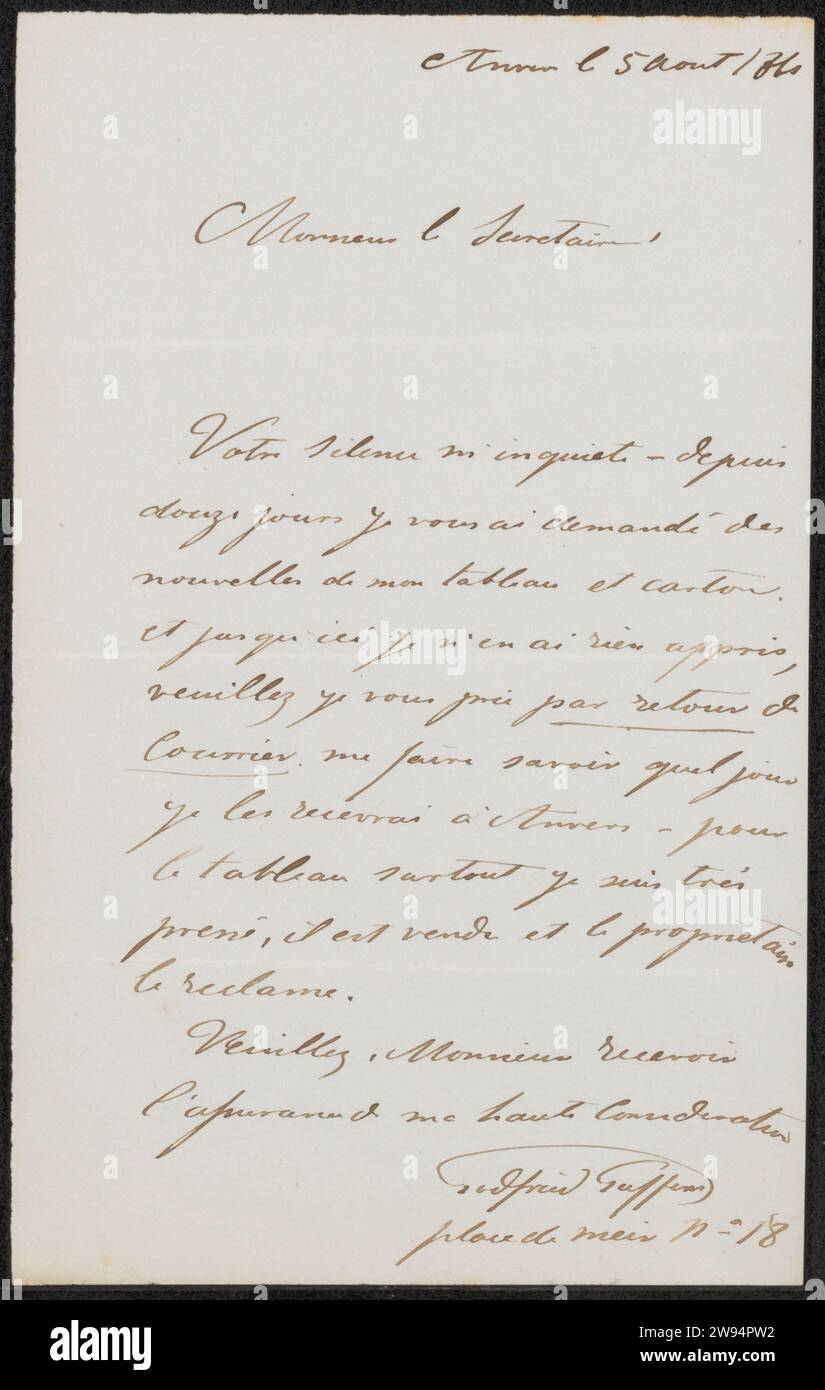 Anvers le 5 Aout
Monsieur le Secretaire,
Votre silence m'inquiete – depuis
douze jours je vous ai demandé des
nouvelles de mon tableau et carton.
et jusqu'ici je n'en ai rien appris,
veuillez je vous prie par retour de
Courrier. me faire savoir quel jour
je les recevrai à Anvers – pour
le tableau surtout je suis très
pressé, il est vendu et le propriétaire
le reclame.
Veuillez, Monsieur recevoir
l'assurance de ma haute Consideration
Godfried Guffens
place de meir No 18
alamy
Image ID: 2W94PW2
www.alamy.com